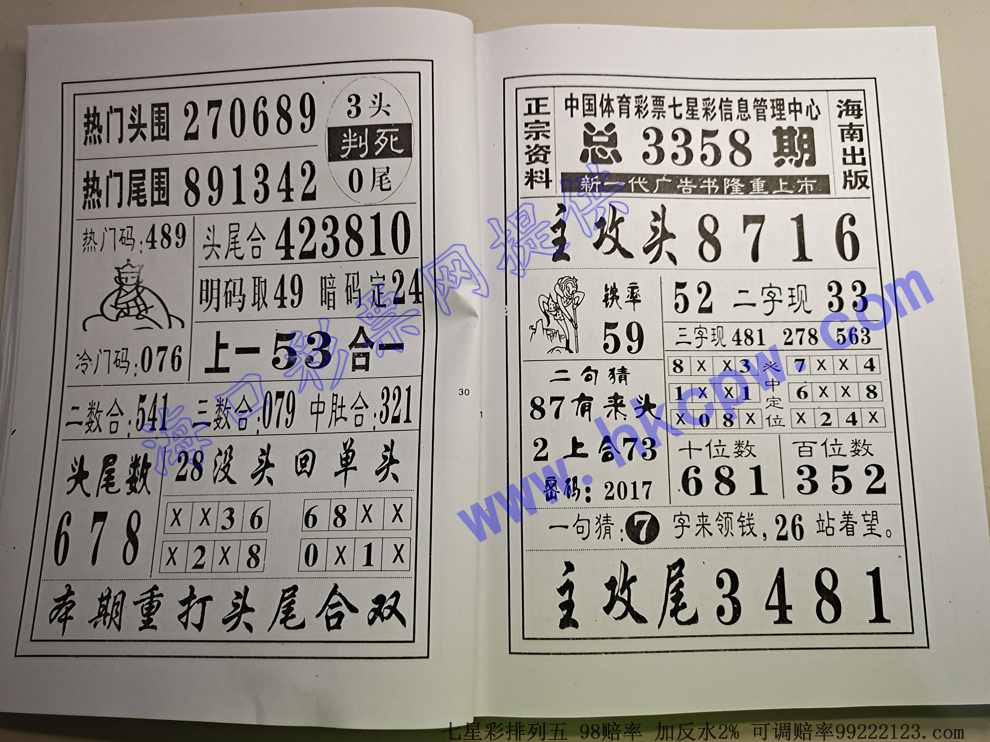 热门头围 270689
3头
判死
0尾
热门尾围 891342
热门码:489
头尾合 423810
明码取49 暗码定24
冷门码:076
上一53合一
二数合:541 三数合:079 中肚合:321
头尾数
678
28没头回单头
XX36 68XX
X2X8 0X1X
本期重打头尾合双
30
1
正宗资料
中国体育彩票七星彩信息管理中心
总 3358 期
新一代广告书隆重上市
海南出版
主攻头8716
铁率
59
52 二字现 33
三字现 481 278 563
二句猜
87有来头
2上合73
密码:2017
8XX3
1XX1
X08X
必中定位
7XX4
6XX8
X24X
十位数
681
百位数
352
一句猜:7字来领钱,26站着望。
主攻尾3481
海口彩票网提供
www.hkcpw.com
七星彩排列五 98赔率 加反水2% 可调赔率99222123.com